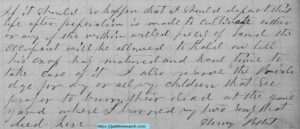 If it should so happen that I should depart this
life after preperation is made to cultivate either
or any of the within willed pieces of land the
occupant will be allowed to hold on till
his crop has matured and have time to
take care of it I also reserve the
for my or all children that see
proper to burry their dead at the same
yard where I burried my two sons that
died here Henry
https://yettiresearch.com